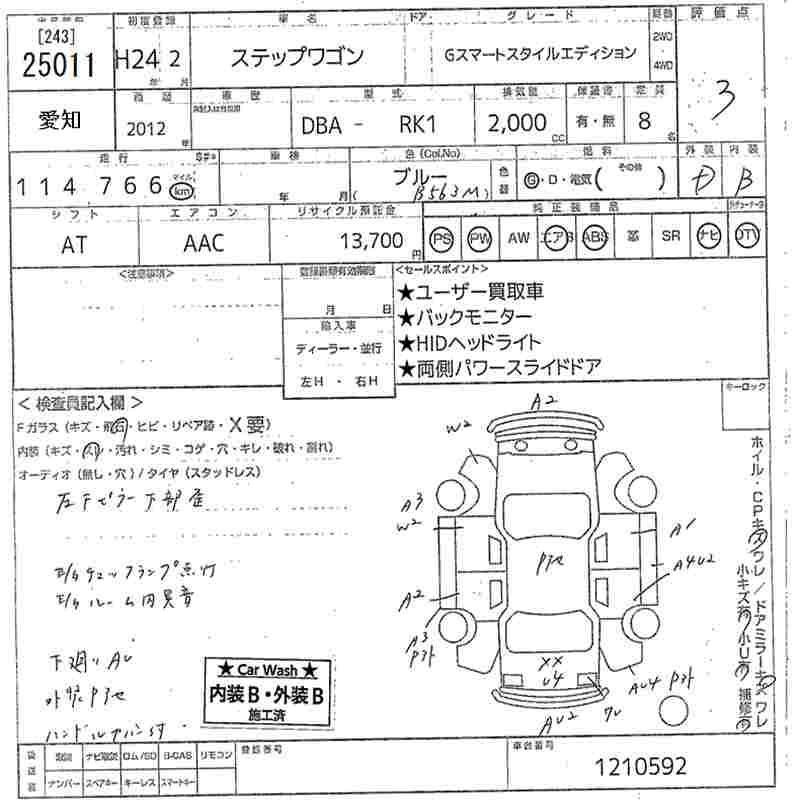 [243]
25011
初度登録
H24 2
年 月
車名
ステップワゴン
ドア
グレード
Gスマートスタイルエディション
2WD
4WD
評価点
3
愛知
2012
年
車歴
型式
DBA - RK1
排気量
2,000
CC
定員
8
名
有・無
走行
114766
マイル
km
車検
年 月
色(Col.No)
ブルー
(B563M)
色替
燃料
G・D・電気( その他 )
外装
D
内装
B
シフト
AT
エアコン
AAC
リサイクル預託金
13,700
円
純正装備品
PS PW AW エアB ABS 革 SR ナビ DTV
<注意事項>
月 日
輸入車
ディーラー・並行
左H ・ 右H
<セールスポイント>
★ユーザー買取車
★バックモニター
★HIDヘッドライト
★両側パワースライドドア
キーロック
<検査員記入欄>
Fガラス(キズ・飛石・ヒビ・リペア跡・X要)
内装(キズ・スレ・汚れ・シミ・コゲ・穴・キレ・破れ・割れ)
オーディオ(無し・穴)/タイヤ(スタッドレス)
下廻りAU
★ Car Wash ★
内装B・外装B
施工済
A2
W2
A3
W2
A1
A4U2
A2
A3
XX
U4
AU4
AU2
ホイル・CPキズワレ/ドアミラーキズワレ
小キズ有 小U有 補修有
後送品
ナビ取説 ロム/SD B-CAS リモコン
ナンバー スペアキー キーレス スマートキー
登録番号
車台番号
1210592